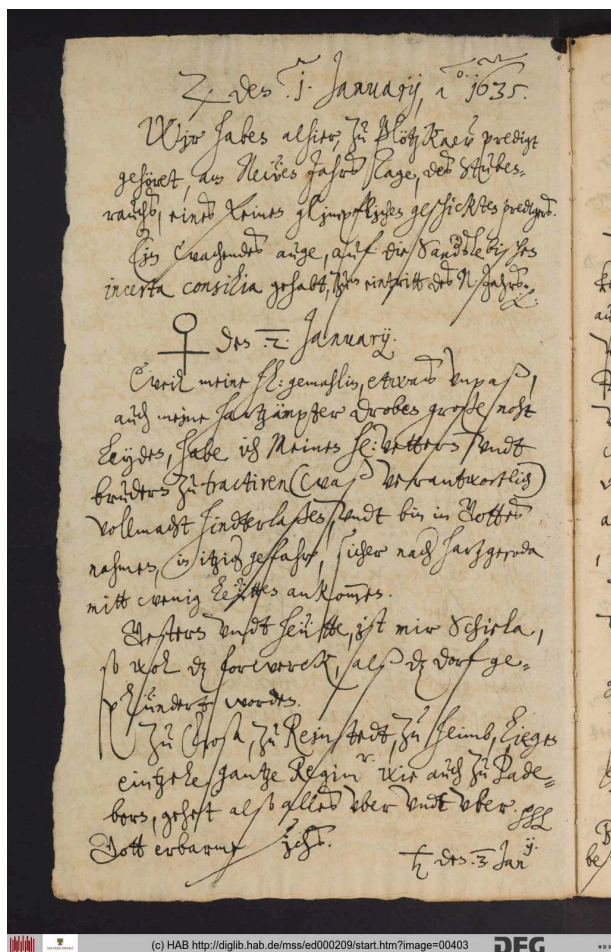 ♃ des 1. Januarij, a° 1635.
Wir haben alhier, zu Plötzkaw predigt
gehöret, am Neẅen Jahrs Tage, des Stuben-
rauchs, eines feinen glimpflichen geschickten predigers.
Ein wachendes auge, auf die Sanderslebischen
incerta consilia gehabt, zum eintritt des N Jahrs.
♀ des 2. Januarij.
Weil meine h: gemahlin, etwas vnpaß,
auch meine hartzämpter droben große noht
leyden, habe ich Meines h: vetters vndt
bruders zu tractiren (waß verantwortlich)
vollmacht hinderlaßen, vndt bin in Gottes
nahmen, in itziger gefahr, sicher nach hartzgeroda
mitt wenig leütten ankommen.
Gestern vndt heütte, ist mir Schiela,
so wol dz forwerck, alß dz dorf ge-
plündert worden.
Zu Ermß, zu Reinstedt, zu heimb, liegen
eintzele gantze Regimenter wie auch zu Pade-
born, gehet alß alles vber vndt vber.
Gott erbarme sichs.
♄ des 3 Januarij.
(c) HAB http://diglib.hab.de/mss/ed000209/start.htm?image=00403
DFG